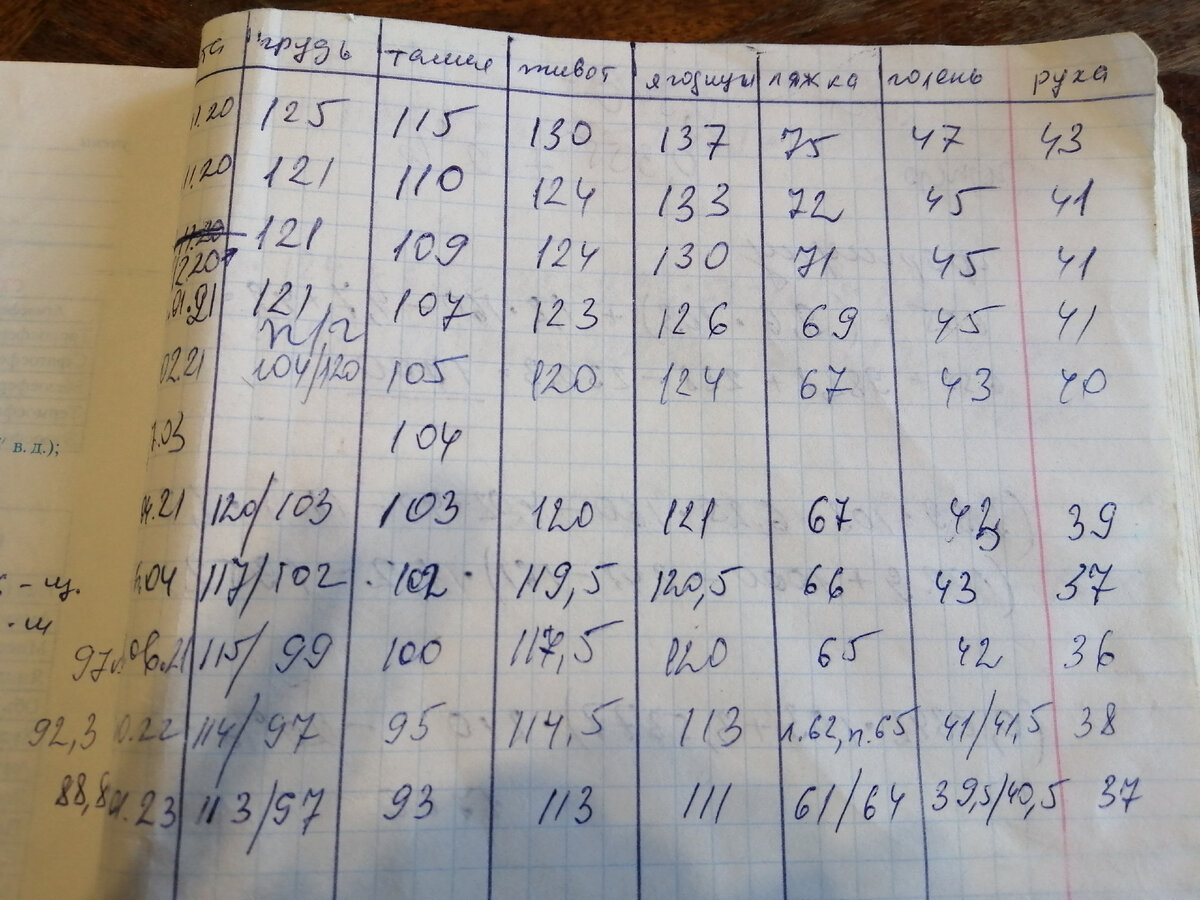 та грудь талия живот ягодицы ляжка голень рука
11.20 125 115 130 137 75 47 43
11.20 121 110 124 133 72 45 41
11.20
12.20 121 109 124 130 71 45 41
.01.21 121 107 123 126 69 45 41
п/г
02.21 104/120 105 120 124 67 43 40
7.03 104
04.21 120/103 103 120 121 67 43 39
в.д.);
- щ. .04 117/102 102 119,5 120,5 66 43 37
- ш
97 .21 115/99 100 117,5 120 65 42 36
92,3 0.22 114/97 95 114,5 113 л.62, п.65 41/41,5 38
88,8 .23 113/97 93 113 111 61/64 39,5/40,5 37